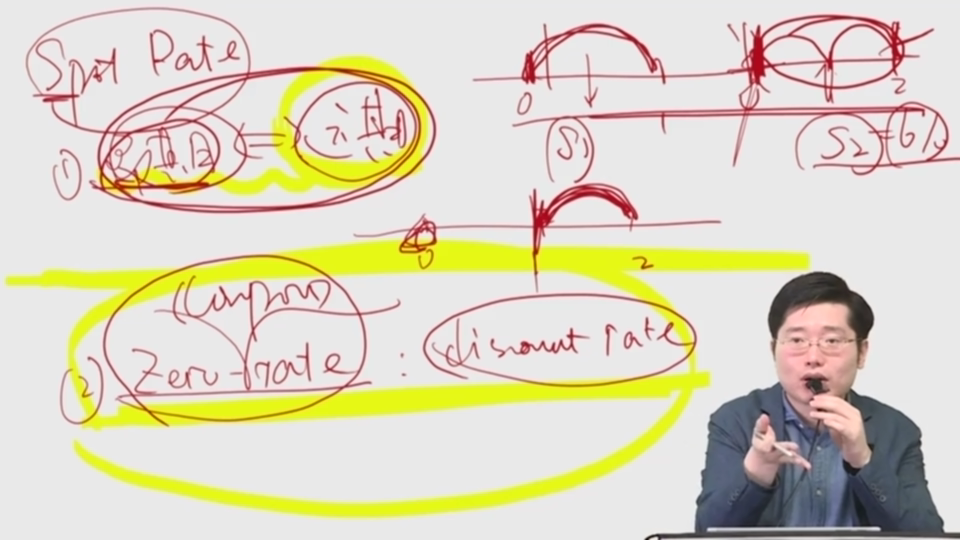 Spot Rate
①
=
0
1
2
S1
S2 = 6%
0
2
(Coupon)
② Zero-rate : discount rate